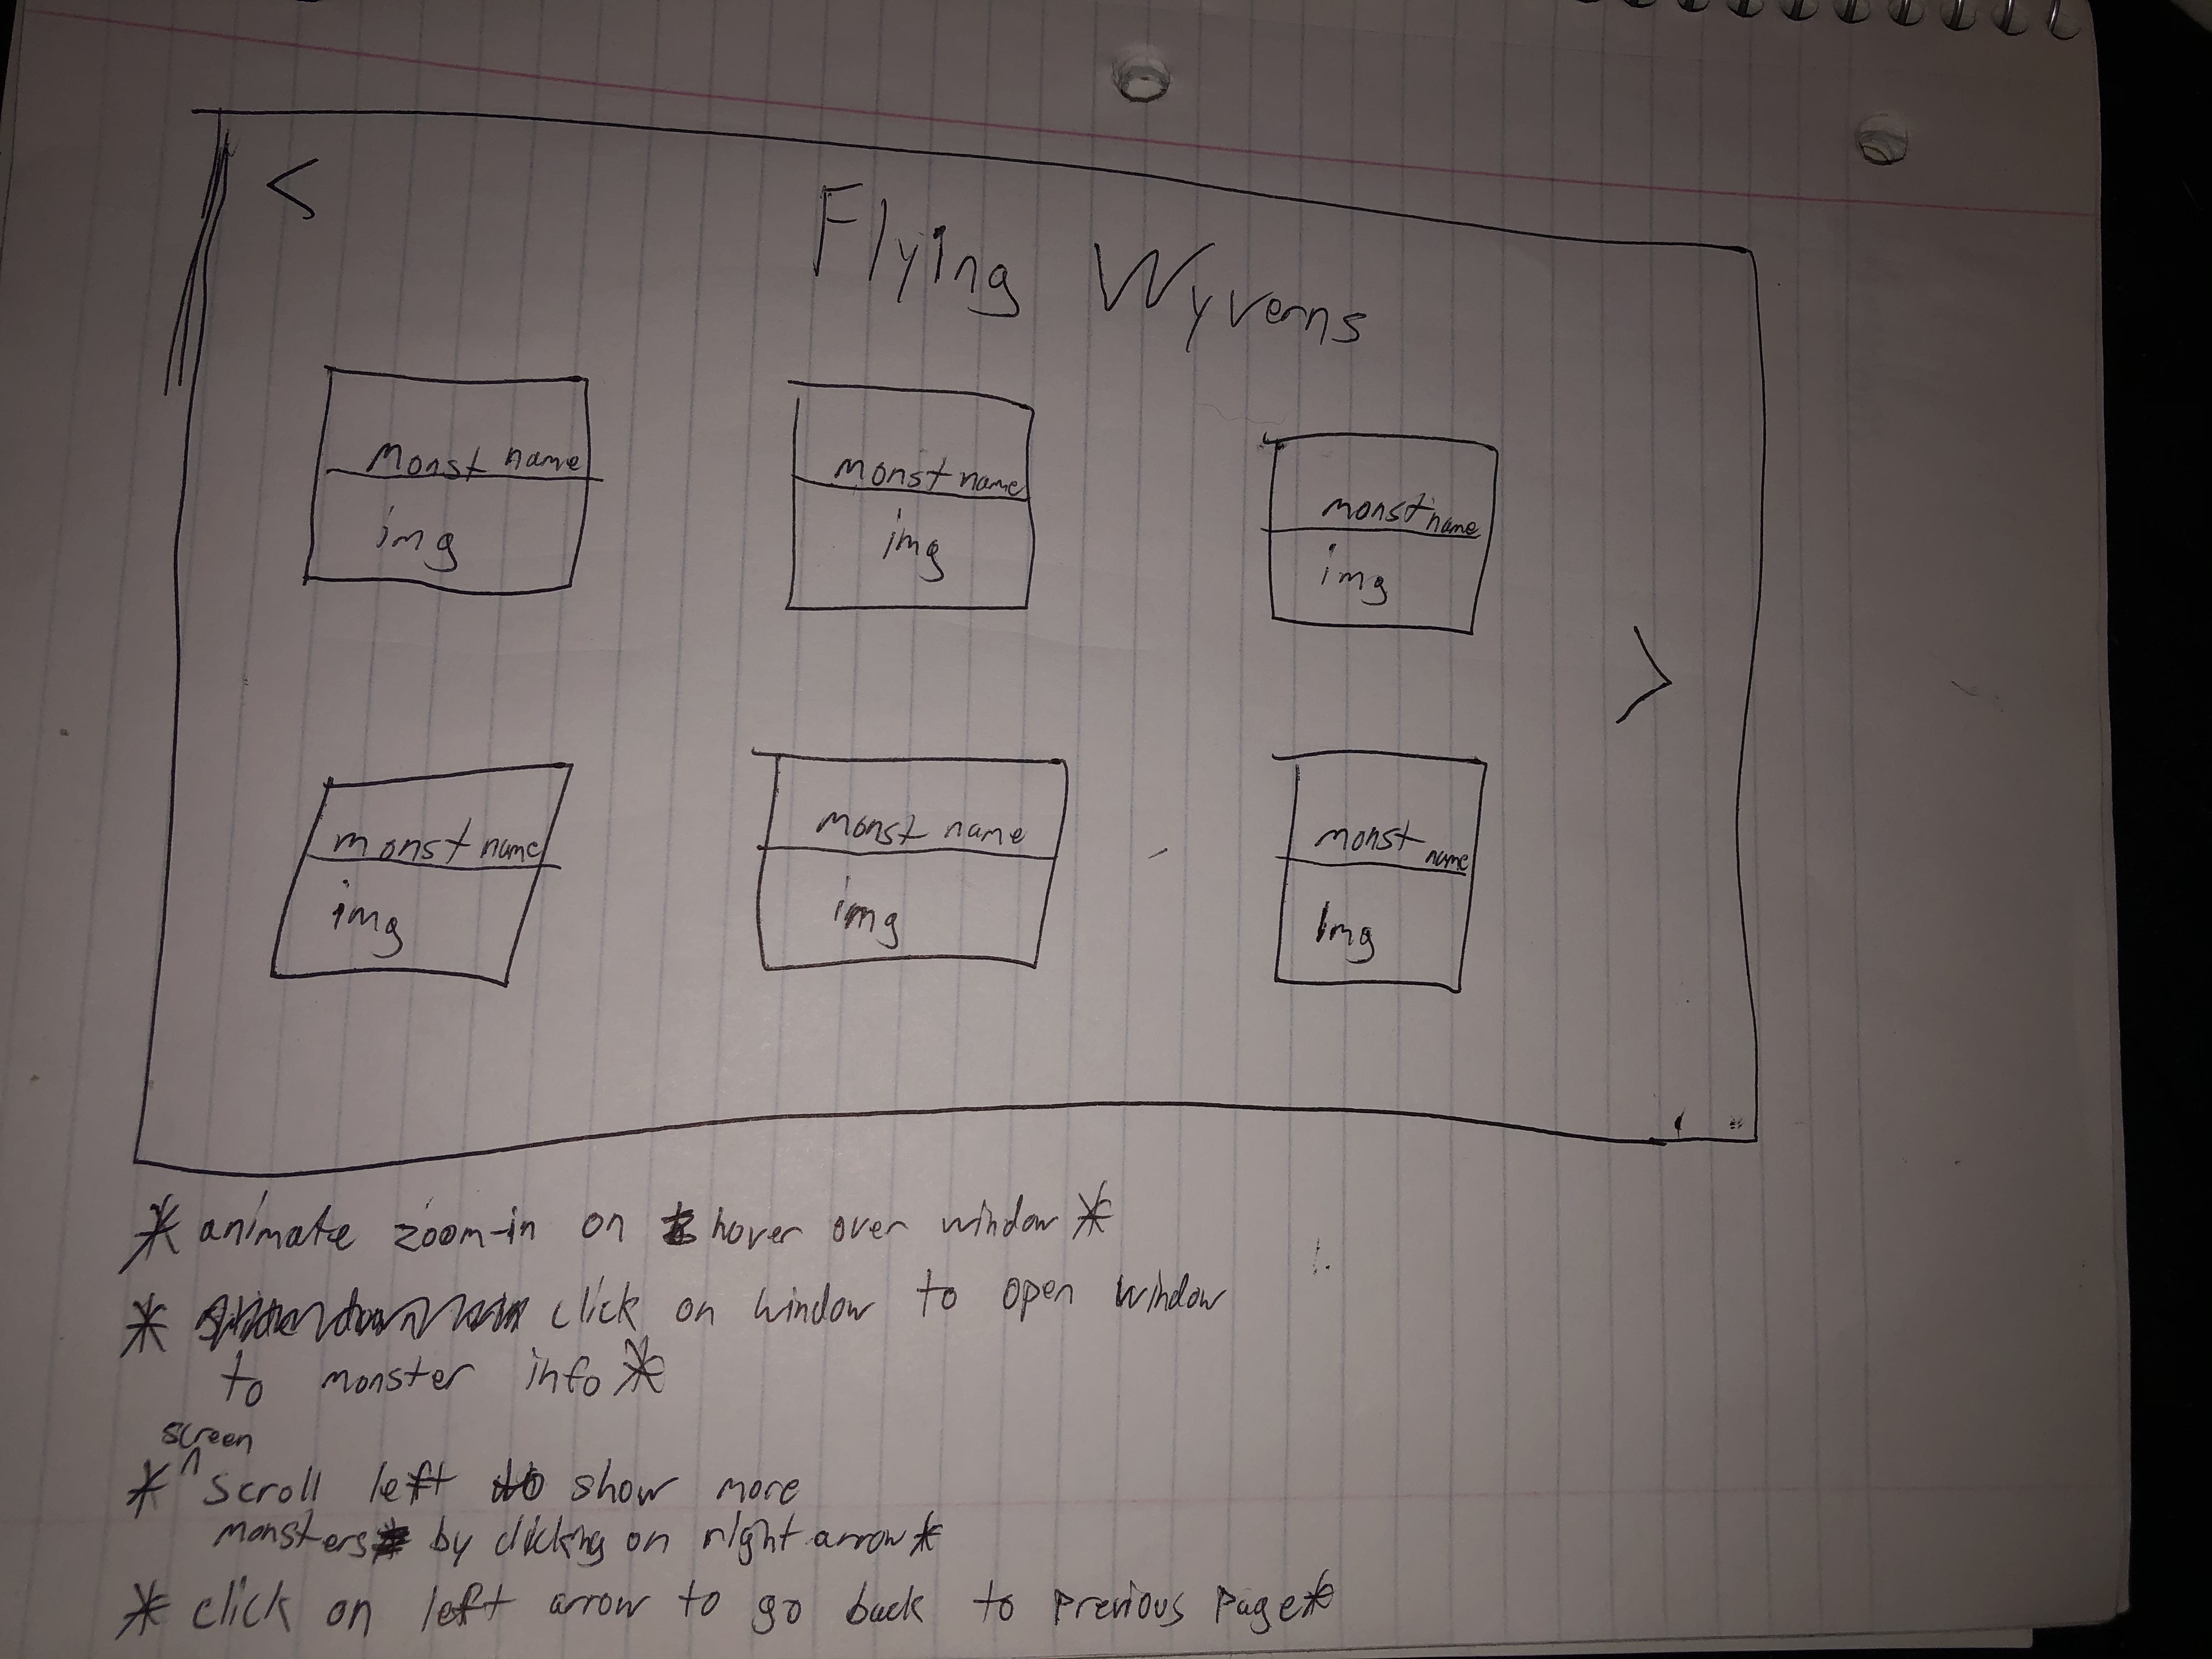 <
Flying Wyverns
monst name
img
monst name
img
monst name
img
>
monst name
img
monst name
img
monst name
img
* animate zoom-in on hover over window *
* click on window to open window
to monster info *
screen
* ^ scroll left to show more
monsters by clicking on right arrow *
* click on left arrow to go back to previous page *